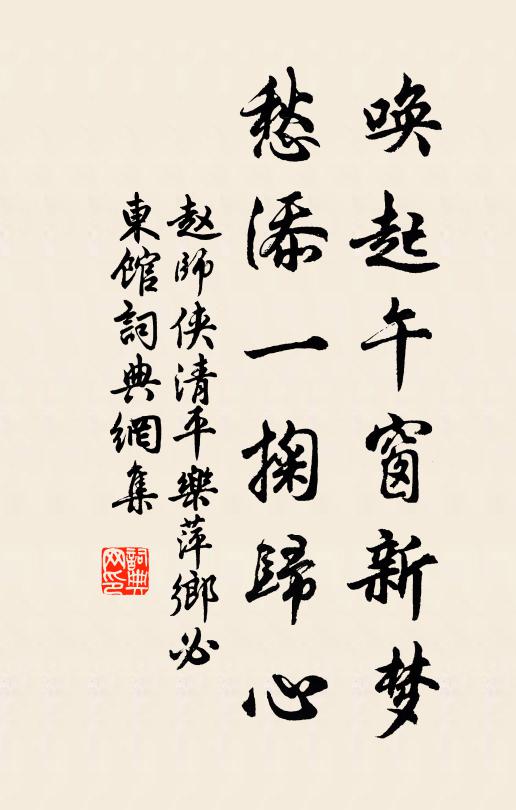 唤起午窗新梦
愁添一掬歸心
赵師侠清平樂萍鄉必
東館詞典網集
詞典網印